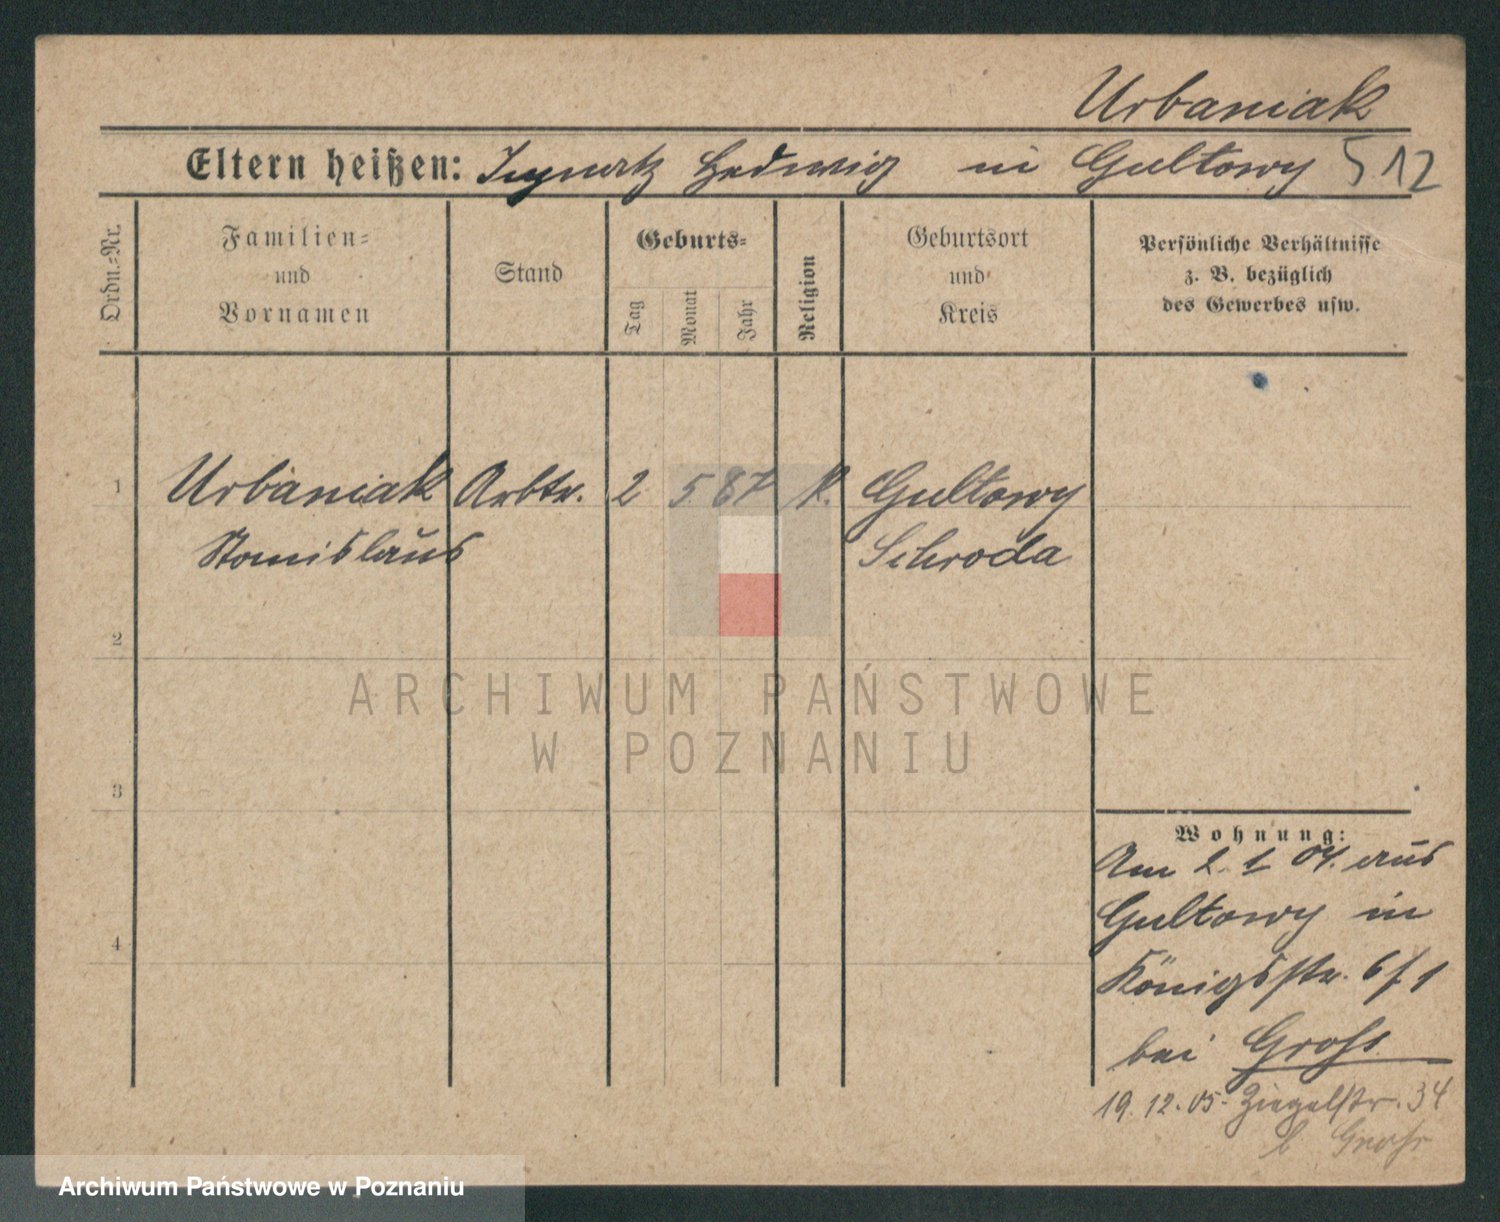 Urbaniak
Eltern heißen: Ignatz Hedwig in Gultowy 512
Ordn.-Nr.
Familien-
und
Vornamen
Stand
Geburts-
Tag
Monat
Jahr
Religion
Geburtsort
und
Kreis
Persönliche Verhältnisse
z. B. bezüglich
des Gewerbes usw.
1 Urbaniak Arbtr. 2 5 87 k. Gultowy
Stanislaus Schroda
2
ARCHIWUM PAŃSTWOWE
W POZNANIU
3
Wohnung:
Am 2. 1 04. aus
Gultowy in
4
Königsstr. 6/1
bei Groß
19.12.05. Ziegelstr. 34
b Groß
Archiwum Państwowe w Poznaniu